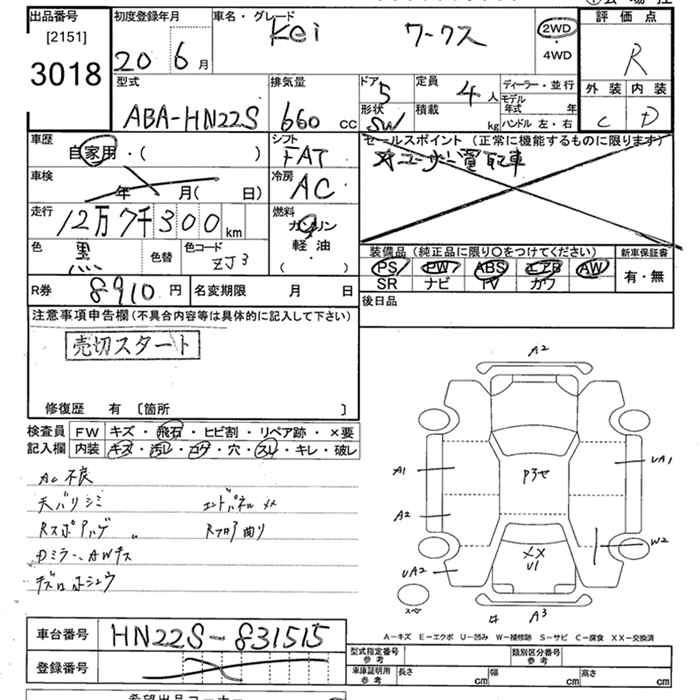 出品番号
[2151]
3018
初度登録年月
20 6月
車名・グレード
Kei ワークス
2WD
・
4WD
評価点
R
外装 内装
C D
型式
ABA-HN22S
排気量
660 cc
ドア
5
定員
4 人
形状
SW
積載
kg
ディーラー・並行
モデル
年式 年
ハンドル 左・右
車歴
自家用・( )
シフト
FAT
セールスポイント (正常に機能するものに限ります)
ユーザー買取車
車検
年 月( 日)
冷房
AC
走行
12万7千300km
燃料
ガソリン
軽油
・( )
色
黒
色替
色コード
ZJ3
装備品 (純正品に限り○をつけてください)
PS PW ABS エアB AW
SR ナビ TV カワ
新車保証書
有・無
R券
8910円
名変期限 月 日
後日品
注意事項申告欄 (不具合内容等は具体的に記入して下さい)
売切スタート
修復歴 有 [箇所 ]
検査員 FW キズ・飛石・ヒビ割・リペア跡・×要
記入欄 内装 キズ・汚レ・コゲ・穴・スレ・キレ・破レ
AC不良
天バリシミ エンドパネルメメ
Rスポアハゲ
Dミラー、AWキズ
A2
A1
UA1
P3セ
A2
W2
XX
U1
UA2
スペ
A3
A-キズ E-エクボ U-凹み W-補修跡 S-サビ C-腐食 XX-交換済
車台番号
HN22S-831515
登録番号
型式指定番号
参考
類別区分番号
参考
車庫証明用
参考
長さ cm
幅 cm
高さ cm
希望出品コーナー